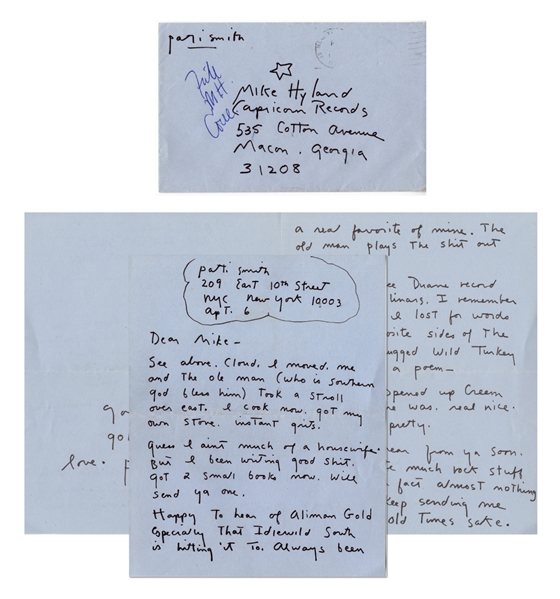 patti smith
File
MH
Corr
Mike Hyland
Capricorn Records
535 Cotton Avenue
Macon, Georgia
31208
patti smith
209 East 10th Street
nyc new york 10003
apt. 6
Dear Mike -
See above. Cloud. I moved. me
and the ole man (who is southern
god bless him) took a stroll
over east. I cook now. got my
own stove. instant grits.
Guess I aint much of a housewife.
But I been writing good shit.
got 2 small books now. Will
send ya one.
Happy to hear of Allman Gold
Especially that Idlewild South
is hitting it to. Always been
a real favorite of mine. The
old man plays the shit out
Duane record
liners. I remember
I lost for words
sides of the
Wild Turkey
a poem-
opened up Creem
was. real nice.
pretty.
from ya soon.
much rock stuff
fact almost nothing
keep sending me
old Times sake.
love.